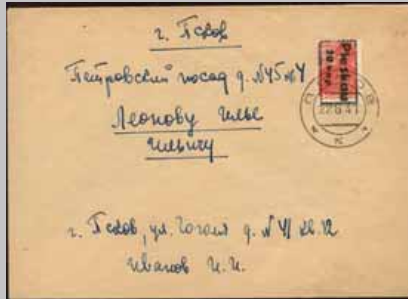 г. Псков
Петровский посад д. №45 кв 4
Леонову Илье
Ильичу
Pleskau
20 коп.
г. Псков, ул. Гоголя д. № 41 кв. 12
Иванов И. И.